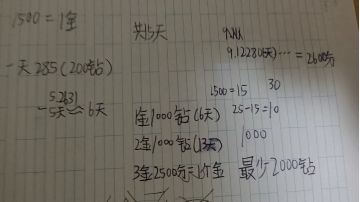 1500=1金
共15天
一天285(200钻)
9.12280(6天)…=2600分
5.2631
一5天≈6天
1500=15 30
1金1000钻(6天) 25-15=10
2金1000钻(13天) 1000
3金2500分=1个金 最少2000钻